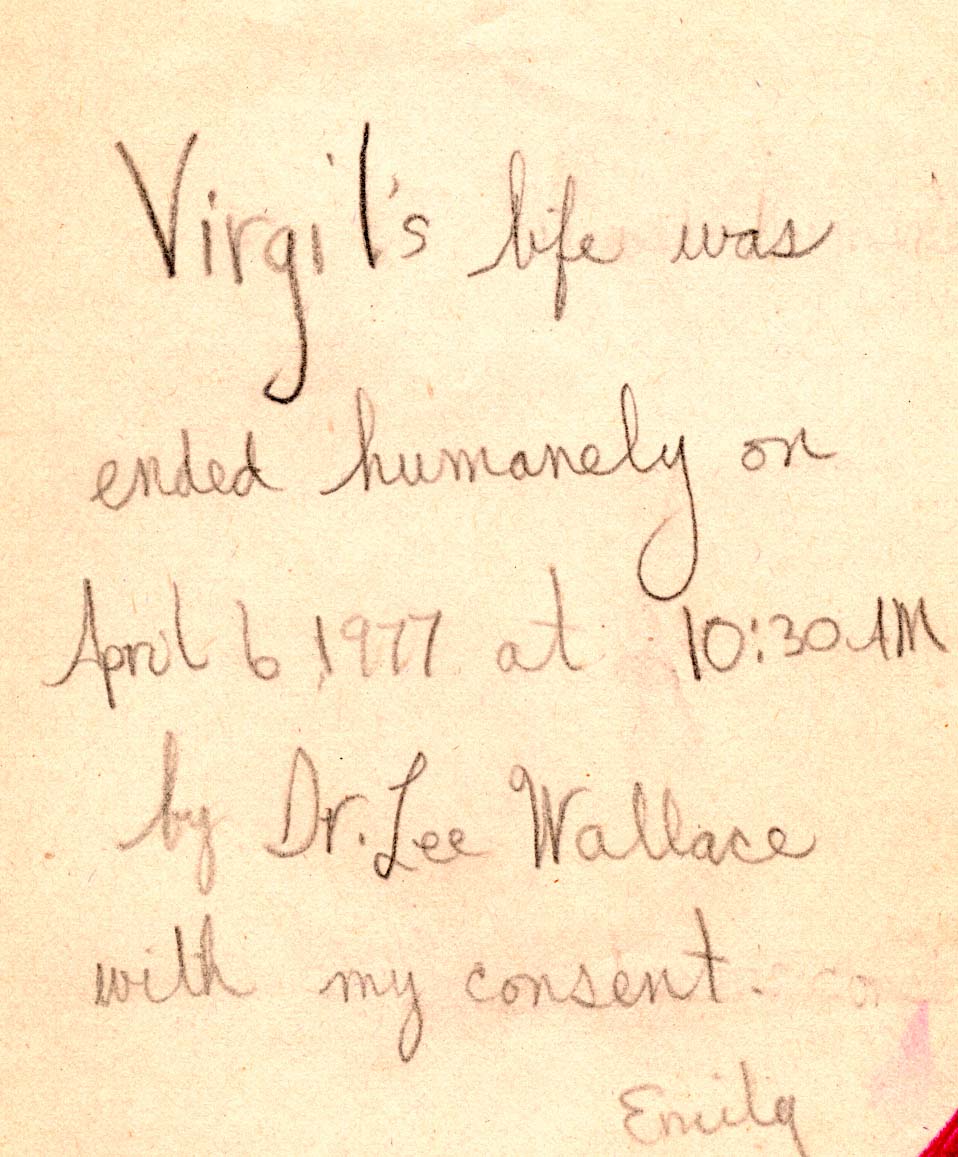 Virgil's life was
ended humanely on
April 6, 1977 at 10:30 AM
by Dr. Lee Wallace
with my consent.
Emily